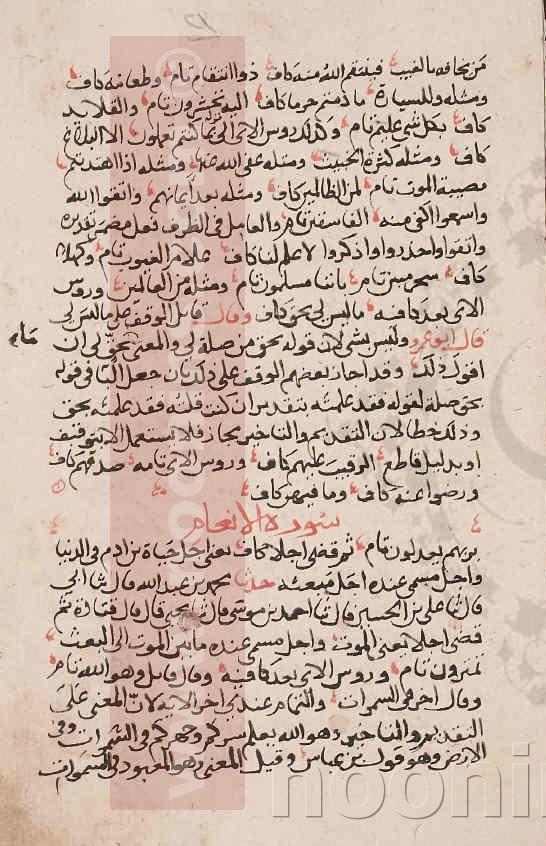 من يخافه بالغيب كاف فينتقم الله منه كاف ذو انتقام تام وطعامه كاف
ومثله وللسيارة ما دمتم حرما كاف اليه تحشرون تام والقلائد
كاف بكل شي عليم تام وكذلك روس الاي الى بما كنتم تعملون الا البلاغ
كاف ومثله كثرة الخبيث ومثله عفى الله عنها ومثله اذا اهتديتم
مصيبة الموت تام لمن الظالمين كاف ومثله بعد أيمانهم واتقوا الله
واسمعوا اكفى منه الفاسقين تام والعامل في الظرف فعل مضمر تقديره
واتقوا واحذروا واذكروا لا علم لنا كاف علام الغيوب تام وكهلا
كاف سحر مبين تام باننا مسلمون تام ومثله من العالمين وروس
الاي بعد كافية ما ليس لي بحق كاف وقال قايل الوقف على ما ليس لي
قال ابو عمرو وليس بشي لان قوله بحق من صلة لي والمعنى بحق لي ان
اقول ذلك وقد اجاز بعضهم الوقف على ذلك بان جعل البا في قوله
بحق صلة لقوله فقد علمته بتقدير ان كنت قلته فقد علمته بحق
وذلك خطا لان التقديم والتاخير مجاز فلا يستعمل الا بتوقيف
او بدليل قاطع الرقيب عليهم كاف وروس الاي تامة صدقهم كاف
ورضوا عنه كاف وما فيهن كاف
سورة الانعام
بربهم يعدلون تام ثم قضى اجلا كاف يعني اجل حياة بن ادم في الدنيا
واجل مسمى عنده اجل مبعثه حدثنا محمد بن عبد الله قال ثنا ابي
قال ثنا علي بن الحسين قال ثنا احمد بن موسى قال ثنا يحيى قال قال قتادة ثم
قضى اجلا يعني الموت واجل مسمى عنده ما بين الموت الى البعث
تمترون تام وروس الاي بعد كافية وقال قايل وهو الله تام
وقال اخر في السموات والتمام عندي اخر الاية لان المعنى على
التقديم والتاخير وهو الله يعلم سركم وجهركم في السموات وفي
الارض وهو قول بن عباس وقيل المعنى وهو المعبود في السموات
noonin